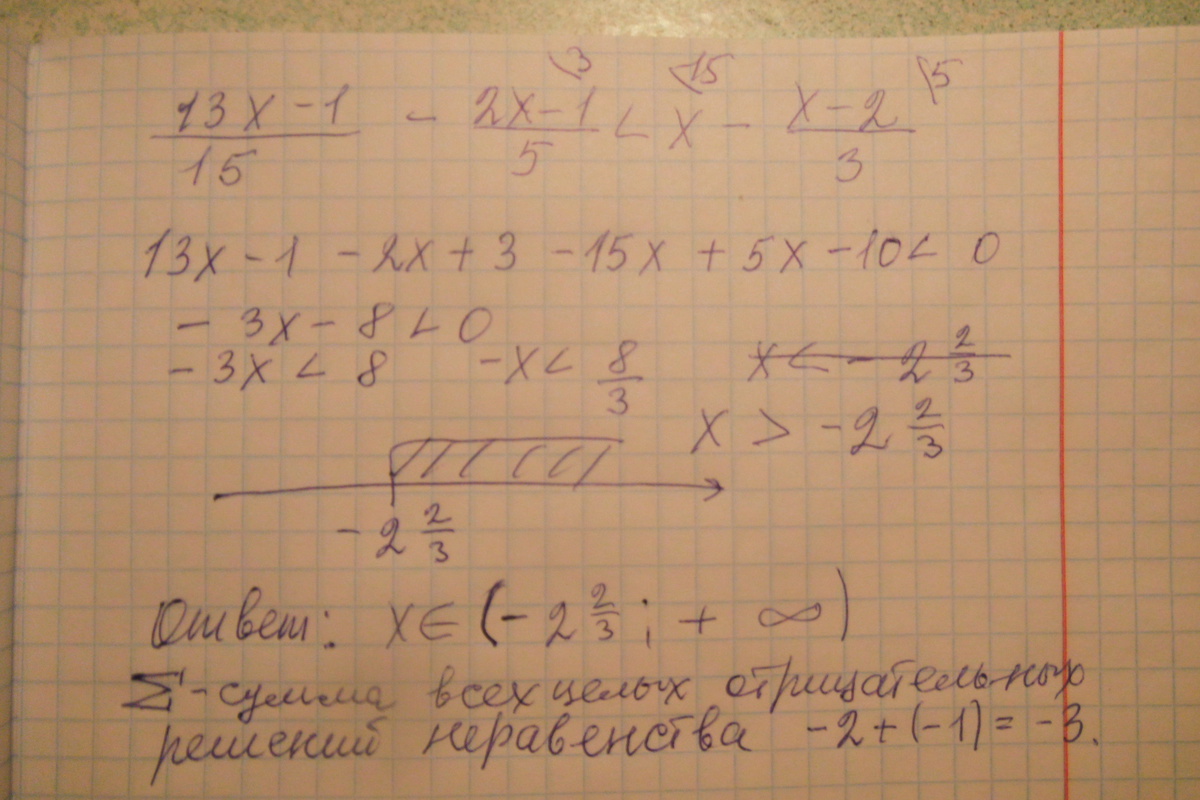 \3 \15 \5
13x-1/15 - 2x-1/5 < x - x-2/3
13x - 1 - 2x + 3 - 15x + 5x - 10 < 0
- 3x - 8 < 0
- 3x < 8 -x < 8/3 x < - 2 2/3
x > -2 2/3
- 2 2/3
Ответ: x ∈ (- 2 2/3 ; + ∞)
Σ-сумма всех целых отрицательных
решений неравенства -2+(-1)= -3.